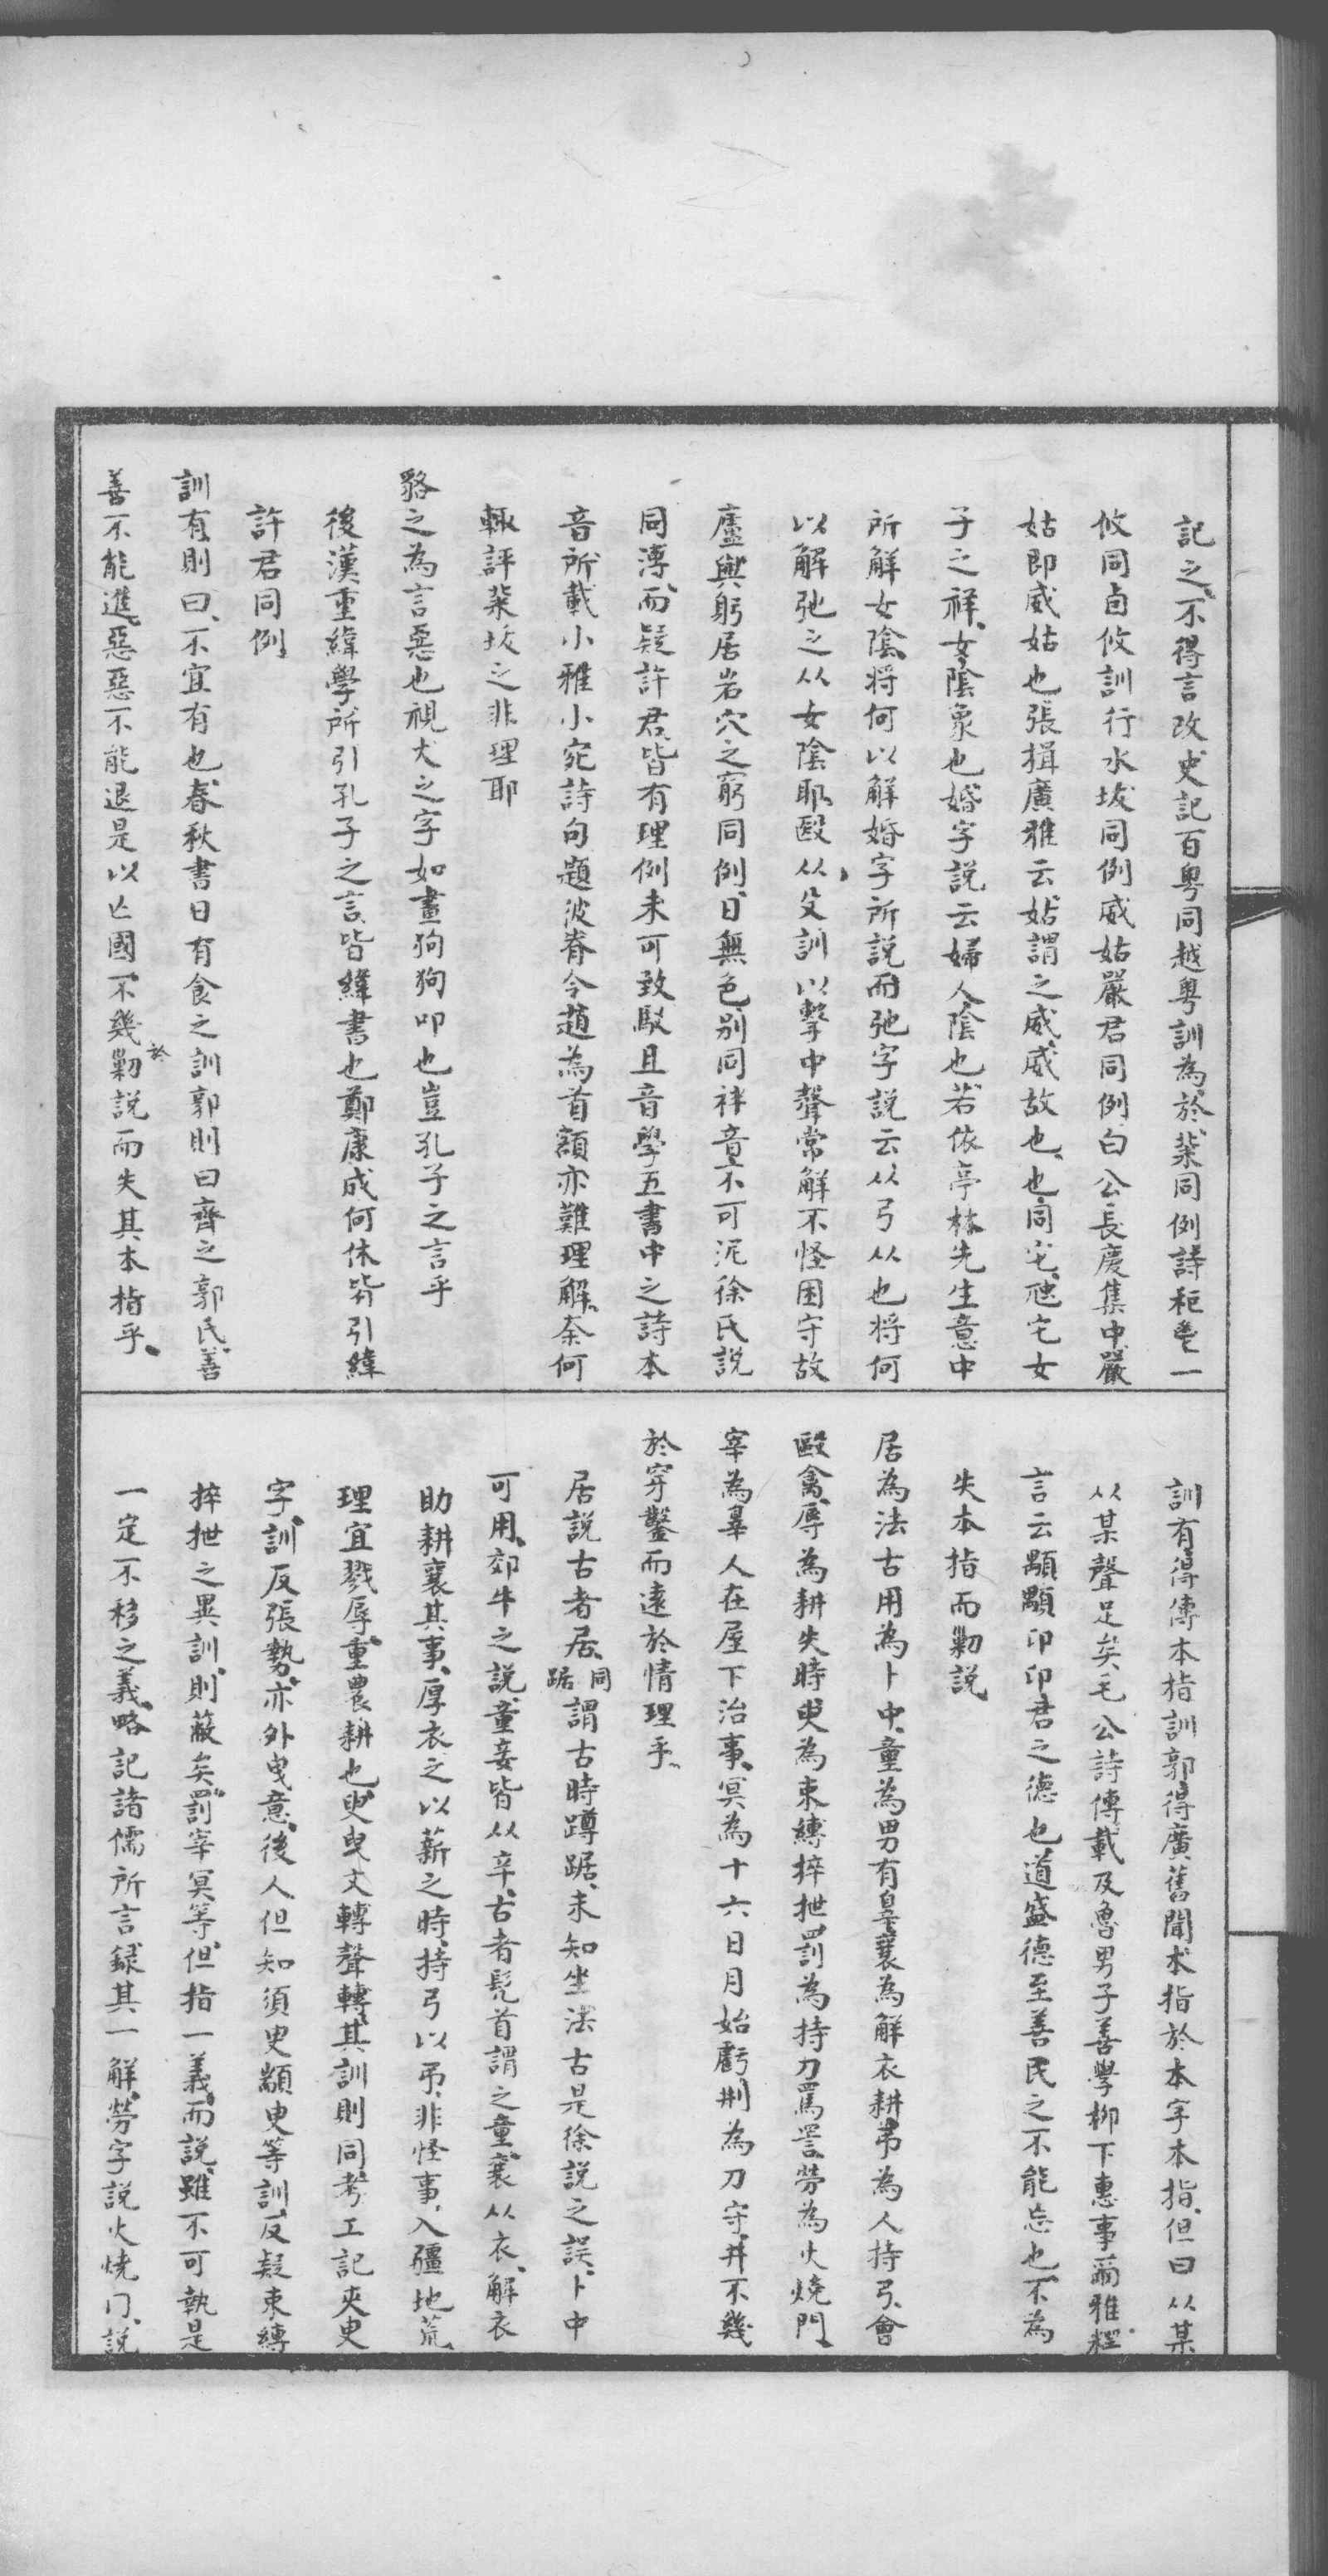 記之不得言改史記百粤同越粤訓為於棐同例詩秬鬯一
攸同卣攸訓行水坺同例威姑嚴君同例白公長慶集中嚴
姑即威姑也張揖廣雅云姑謂之威威故也也同宅虺宅女
子之祥女陰象也婚字説云婦人陰也若依亭林先生意中
所解女陰將何以解婚字所説而弛字説云从弓从也將何
以解弛之从女陰耶毆从殳訓以擊中聲常解不怪困守故
廬與躬居岩穴之窮同例日無色别同袢音不可泥徐氏説
同溥而疑許君皆有理例未可致駁且音學五書中之詩本
音所載小雅小宛詩句題波脊令趙為首額亦難理解奈何
輒評棐坺之非理耶
貉之為言惡也視犬之字如畫狗狗叩也豈孔子之言乎
後漢重緯學所引孔子之言皆緯書也鄭康成何休皆引緯
許君同例
訓有則曰不宜有也春秋書日有食之訓郭則曰齊之郭氏善
善不能進惡惡不能退是以亡國不幾於勦説而失其本指乎
訓有得傳本指訓郭得廣舊聞本指於本字本指但曰从某
从某聲足矣毛公詩傳載及魯男子善學柳下惠事爾雅釋
言云顒顒卬卬君之德也道盛德至善民之不能忘也不為
失本指而勦説
居為法古用為卜中童為男有辠襄為解衣耕弔為人持弓會
毆禽辱為耕失時臾為束縛捽抴罰為持刀罵詈勞為火燒門
宰為辠人在屋下治事冥為十六日月始虧刑為刀守井不幾
於穿鑿而遠於情理乎
居説古者居同踞謂古時蹲踞未知坐法古是徐説之誤卜中
可用郊牛之説童妾皆从辛古者髡首謂之童襄从衣解衣
助耕襄其事厚衣之以薪之時持弓以弔非怪事入疆地荒
理宜戮辱重農耕也臾曳文轉聲轉其訓則同考工記夾臾
字訓反張勢亦外曳意後人但知須臾顓臾等訓反疑束縛
捽抴之異訓則蔽矣罰宰冥等但指一義而説雖不可執是
一定不移之義略記諸儒所言録其一解勞字説火燒冂説